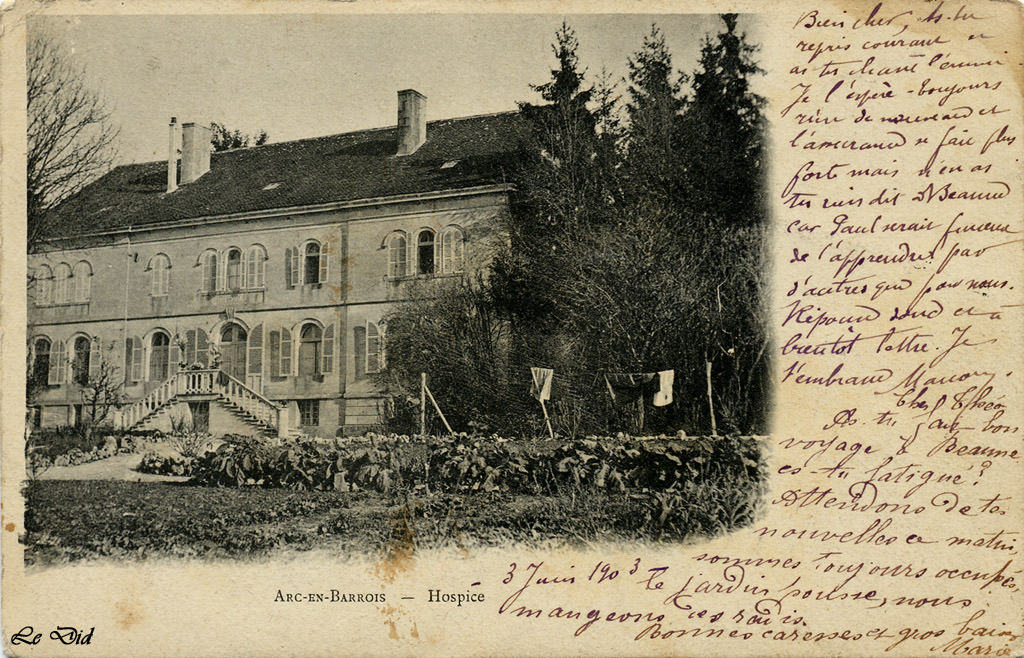 Bien cher, As-tu
repris courant et
as tu chassé l'ennui
Je l'espère - toujours
rien de nouveau et
se fait plus
forte mais n'en as
tu rien dit à Beaune
car Paul serait furieux
de l'apprendre par
d'autres que par nous.
Répond donc et à
bientôt lettre. Je
t'embrasse
Cher
As-tu fait bon
voyage à Beaune
es-tu fatigué?
Attendons de tes
nouvelles ce matin,
sommes toujours occupés,
3 Juin 1903 le jardin pousse, nous
mangeons des radis.
Bonnes caresses et gros baisers
Marie
Arc-en-Barrois — Hospice
Le Did